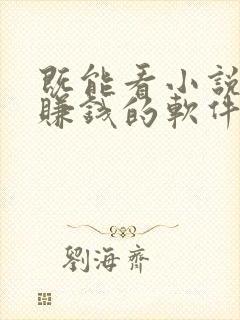 既能看小說
賺錢的軟件
劉海齊